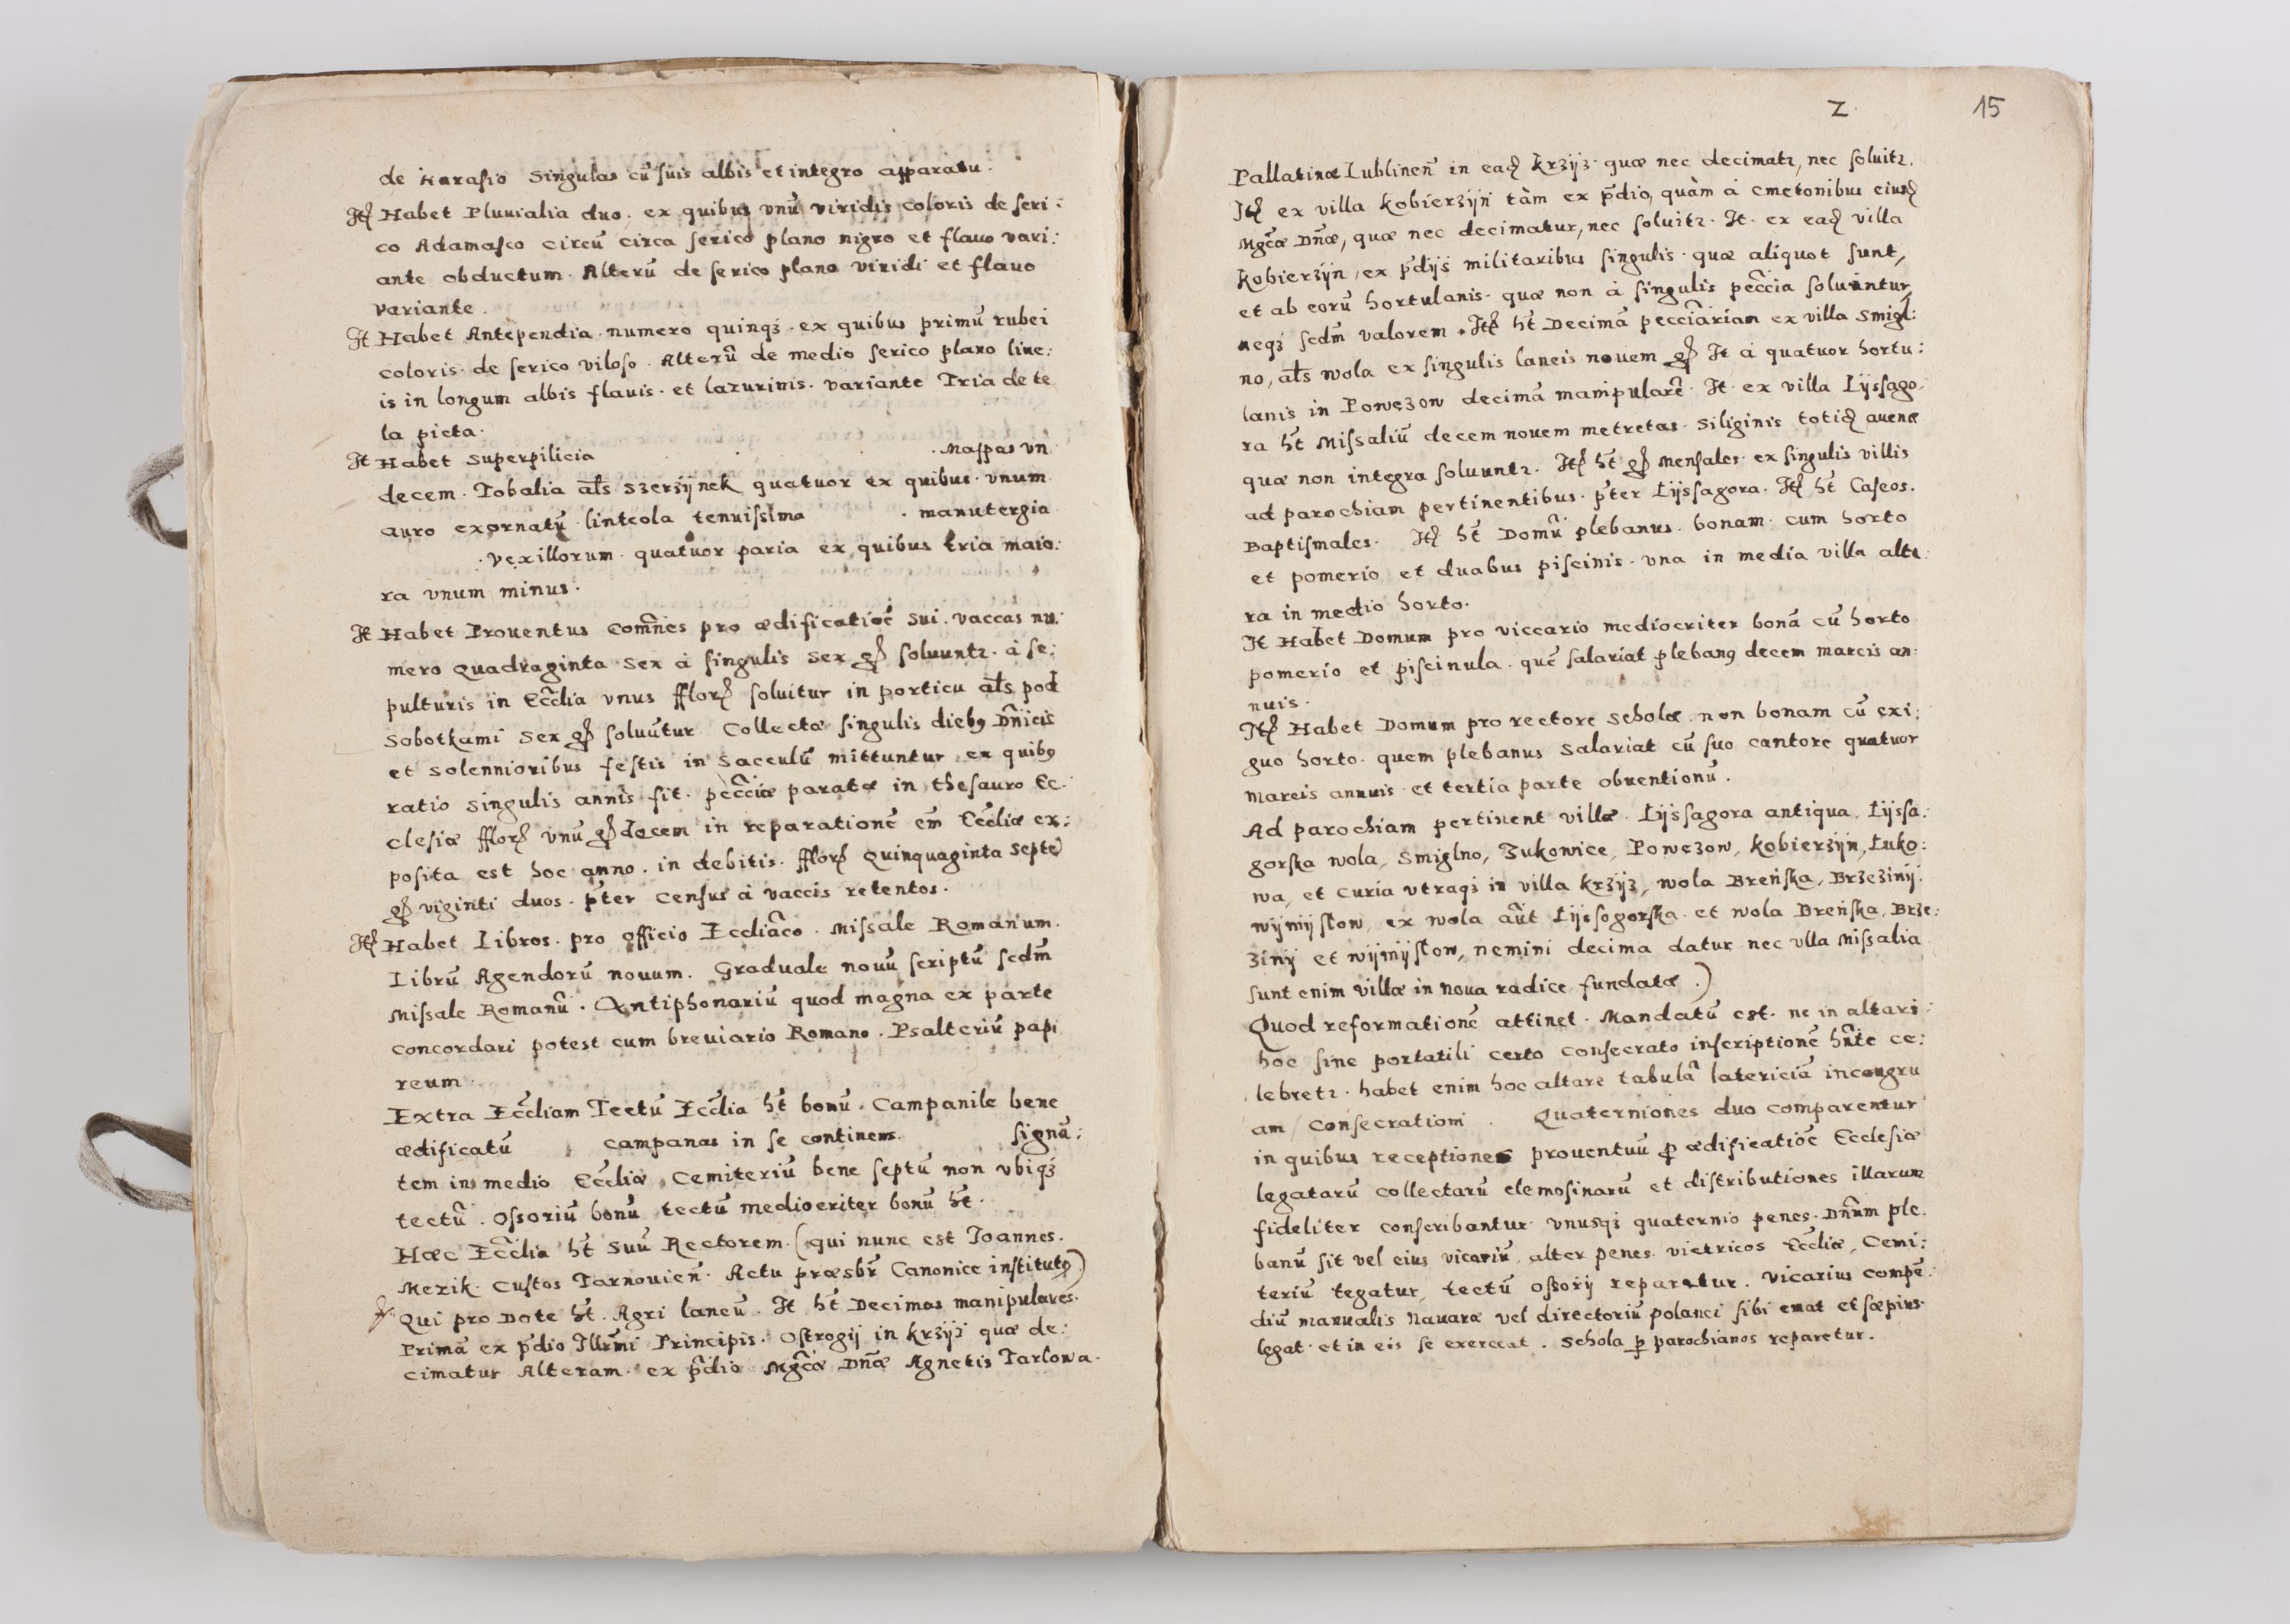 de Karasio Singulas cū suis albis et integro apparatu.
Itē Habet Pluuialia duo. ex quibus vnū viridis coloris de seri:
co Adamasco circū circa serico plano nigro et flauo vari:
ante obductum. Alterū de serico plano viridi et flauo
variante.
It Habet Antependia. numero quinq3. ex quibus primū rubei
coloris. de serico viloso. Alterū de medio serico plano line:
is in longum albis flauis. et lazurinis. variante Tria de te
la picta.
It Habet superpilicia . . . Mappas vn
decem. Tobalia aľs szerzÿnek quatuor ex quibus. vnum
auro exornatū. linteola tenuissima . manutergia
. vexillorum. quatuor paria ex quibus tria maio:
ra vnum minus.
It Habet Prouentus com̃nes pro ædificatiõe sui. vaccas nu:
mero quadraginta sex à singulis sex gř soluuntr. à se:
pulturis in Ecc̃lia vnus fflorē soluitur in porticu aľs pod
sobotkami sex gř soluūtur Collectæ singulis dieb9 Dñicis
et solennioribus festis in sacculū mittuntur ex quib9
ratio singulis annis fit. pecc̃iæ paratæ in thesauro Ec:
clesiæ fflorē vnū gř decem in reparationē em̃ Ecc̃liæ ex:
posita est hoc anno. in debitis. fflorē Quinquaginta septē
gř viginti duos. p̃ter census à vaccis retentos.
Itē Habet Libros. pro officio Eccliãco. Missale Romanum.
Librū Agendorū nouum. Graduale nouū scriptū scdm̃
Missale Romanū. Antiphonariū quod magna ex parte
concordari potest cum breuiario Romano. Psalteriū papi
reum.
Extra Ecc̃liam Tectū Ecc̃lia ht̃ bonū. Campanile bene
ædificatū campanas in se continens. signū:
tem in medio Ecc̃liæ. Cemiteriū bene septū non vbiq3
tectū. Ossoriū bonū tectū mediocriter bonū ht̃.
Hæc Ecc̃lia ht̃ suū Rectorem. (qui nunc est Ioannes.
Mezik. Custos Tarnouieñ. Actu præsbr̃ Canonice institut9)
Qui pro Dote ht̃. Agri laneū. It ht̃ Decimas manipulares.
Primā ex p̃dio Illr̃mi Principis. Ostrogij in krzÿż quæ de:
cimatur Alteram. ex p̃dio Mgc̃æ Dñæ Agnetis Tarlowa.
Z. 15
Pallatinæ Lublineñ in eadē krzÿż. quæ nec decimatr, nec soluitr.
Itē ex villa kobierzÿn tàm ex p̃dio, quàm à cmetonibus eiusdē
Mgc̃æ Dñæ, quæ nec decimatur, nec soluitr. It. ex eadē villa
kobierzÿn, ex p̃dijs militaribus singulis. quæ aliquot sunt,
et ab eorū hortulanis. quæ non à singulis pecc̃ia soluuntur,
neq3 scdm̃ valorem. Itē ht̃ Decimā pecciãriam ex villa smigl:
no, aľs wola ex singulis laneis nouem gř It à quatuor hortu:
lanis in Powęzow decimā manipularē. It. ex villa Lÿssago:
ra ht̃ Missaliū decem nouem metretas. siliginis totidē auenæ
quæ non integra soluuntr. Itē ht̃ gř Mensales. ex singulis villis
ad parochiam pertinentibus. p̃ter Lÿssagora. Itē ht̃ Caseos.
Baptismales. Itē ht̃ Domū plebanus. bonam. cum horto
et pomerio et duabus piscinis. vna in media villa alte:
ra in medio horto.
It Habet Domum pro viccario mediocriter bonā cū horto
pomerio et piscinula. quē salariat pleban9 decem marcis an:
nuis.
Itē Habet Domum pro rectore scholæ. non bonam cū exi:
guo horto. quem plebanus salariat cū suo cantore quatuor
marcis annuis et tertia parte obuentionū.
Ad parochiam pertinent villæ. Lÿssagora antiqua, Lÿssa:
gorska wola, smiglno, Zukowice, Powęzow, kobierzÿn, Łuko:
wa, et curia vtraq3 in villa krzÿż, wola Breńska, Brzezinÿ.
wÿmÿslow, ex wola aūt Lÿssogorska. et wola Breńska, Brze:
zinÿ et wÿmÿslow, nemini decima datur nec vlla Missalia
sunt enim villæ in noua radice fundatæ.)
Quod reformationē attinet. Mandatū est. ne in altari
hoc sine portatili certo consecrato inscriptionē hñte ce:
lebretr. habet enim hoc altare tabulā latericiā incongru
am Consecrationi. Quaterniones duo comparentur
in quibus receptiones prouentuū p ædificatiõe Ecclesiæ
legatarū collectarū elemosinarū et distributiones illarum
fideliter conscribantur. vnusq3 quaternio penes. Dñum ple:
banū sit vel eius vicariū, alter penes. vietricos Ecc̃liæ, Cemi:
teriū tegatur, tectū ossorij reparetur. Vicarius compē:
diū manualis Nauaræ vel directoriū polanci sibi emat et sæpius.
legat. et in eis se exerceat. Schola p parochianos reparetur.